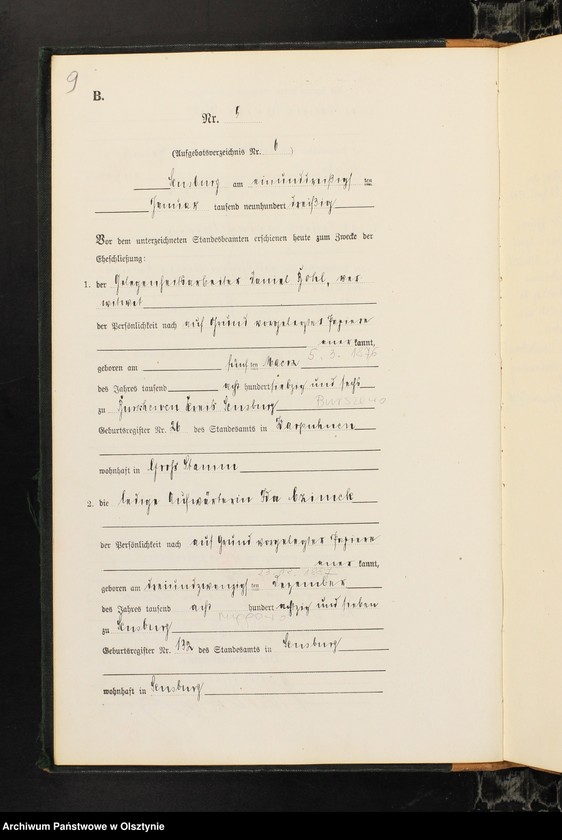 9
B.
Nr. 6
(Aufgebotsverzeichnis Nr. 6)
Sensburg am einunddreißigs ten
Januar tausend neunhundert dreißig
Vor dem unterzeichneten Standesbeamten erschienen heute zum Zwecke der
Eheschließung:
1. der Gelegenheitsarbeiter Daniel, ver
witwet
der Persönlichkeit nach auf Grund vorgelegter Papiere
aner kannt,
5. 3. 1876
geboren am fünf ten Maerz
des Jahres tausend acht hundert siebzig und sechs
zu Kreis Sensburg
Geburtsregister Nr. 26 des Standesamts in Warpuhnen
wohnhaft in Groß Stamm
2. die ledige Aufwärterin Ida
der Persönlichkeit nach auf Grund vorgelegter Papiere
aner kannt,
geboren am dreiundzwanzigs ten Dezember
des Jahres tausend acht hundert achtzig und sieben
zu Sensburg
Geburtsregister Nr. 132 des Standesamts in Sensburg
wohnhaft in Sensburg
Archiwum Państwowe w Olsztynie